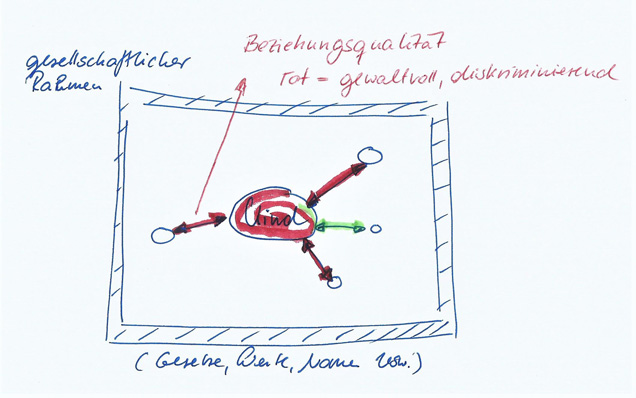 Beziehungsqualität
rot = gewaltvoll, diskriminierend
gesellschaftlicher
Rahmen
Kind
(Gesetze, Werte, Normen usw.)